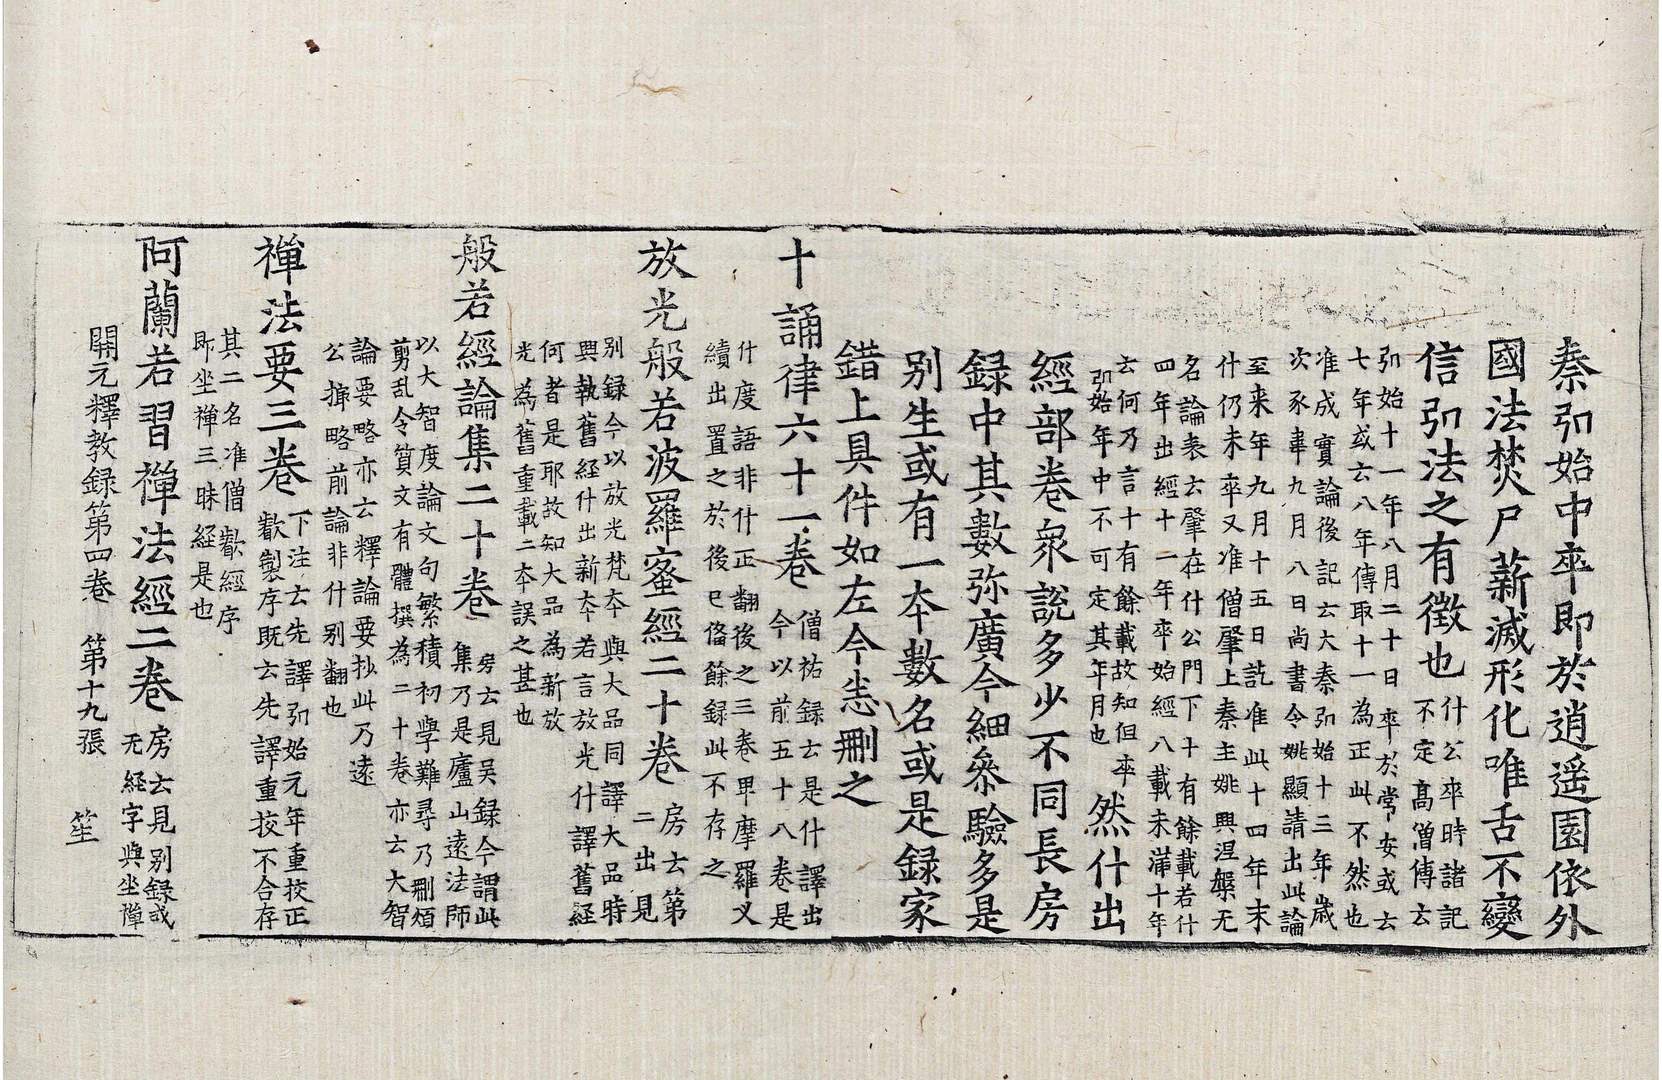 秦弘始中卒即於逍遥園依外
國法焚尸薪滅形化唯舌不變
信弘法之有徵也 什公卒時諸記
不定髙僧傳云
弘始十一年八月二十日卒於常安或云
七年或云八年傳取十一為正此不然也
准成實論後記云大秦弘始十三年歲
次豕韋九月八日尚書令姚顯請出此論
至来年九月十五日訖准此十四年末
什仍未卒又准僧肇上秦主姚興涅槃无
名論表云肇在什公門下十有餘載若什
四年出經十一年卒始經八載未滿十年
云何乃言十有餘載故知但卒
弘始年中不可定其年月也
然什出
經部卷衆說多少不同長房
録中其數弥廣今細叅驗多是
别生或有一夲數名或是録家
錯上具件如左今悉删之
十誦律六十一卷 僧祐録云是什譯出
今以前五十八卷是
什度語非什正翻後之三卷卑摩羅义
續出置之於後已俻餘録此不存之
放光般若波羅蜜經二十卷 房云第
二出見
别録今以放光梵夲與大品同譯大品時
興執舊經什出新夲若言放光什譯舊經
何者是耶故知大品為新放
光為舊重載二夲誤之甚也
般若經論集二十卷 房云見吴録今謂此
集乃是廬山遠法師
以大智度論文句繁積初學難尋乃删煩
剪乱令質文有體撰為二十卷亦云大智
論要略亦云釋論要抄此乃遠
公撰略前論非什别翻也
禪法要三卷 下注云先譯弘始元年重挍正
歡製序既云先譯重挍不合存
其二名准僧歡經序
即坐禪三昧經是也
阿蘭若習禪法經二卷 房云見别録或
无經字與坐禪
開元釋教録第四卷 第十九張 笙